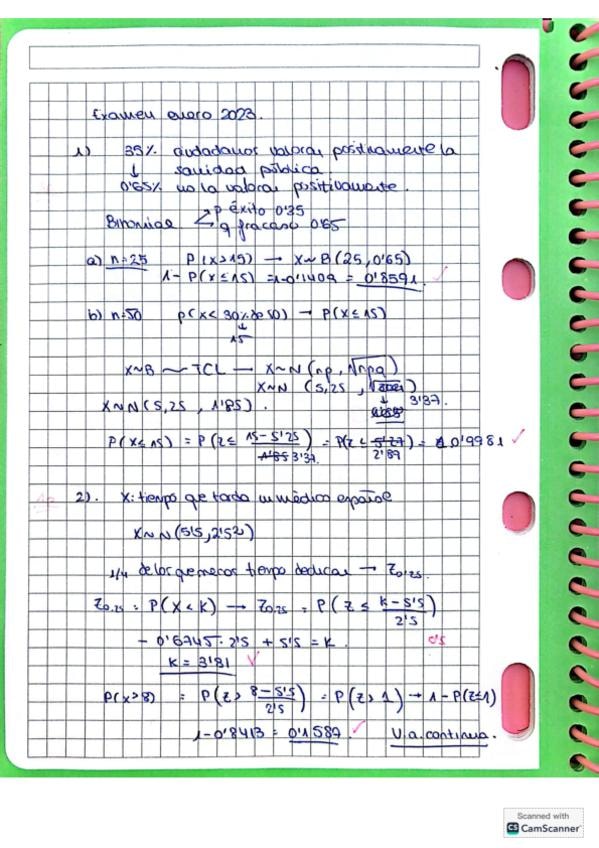 Examen enero 2023.
1) 35% ciudadanos valoran positivamente la
↓ sanidad pública
0'65% no la valoran positivamente.
Binomial p éxito 0'35
q fracaso 0'65
a) n=25 P(x>15) → X~B(25,0'65)
1-P(x≤15) = 1-0'1409 = 0'8591. ✓
b) n=50 p(x< 30% de 50) → P(x≤15)
↓
15
X~B ~ TCL → X~N(np, √npq)
X~N (5,25, √
↓ 3'37.
X~N(5,25, 1'85).
P(x≤15) = P(z≤ 15-5'25 / 1'85 3'37.) = P(z≤ / 2'89) = 0'9981 ✓
2). X: tiempo que tarda un médico español
X~N(5'5, 2'5²)
1/4 de los que menos tiempo dedican → Z0'25.
Z0,25 = P(X<K) → Z0,25 = P(Z≤ K-5'5 / 2'5)
- 0'6745 · 2'5 + 5'5 = K. 0'5
K = 3'81 ✓
P(x>8) = P(z> 8-5'5 / 2'5) = P(z>1) → 1-P(z≤1)
1-0'8413 = 0'1587. ✓ V.a. continua.
Scanned with
CS CamScanner